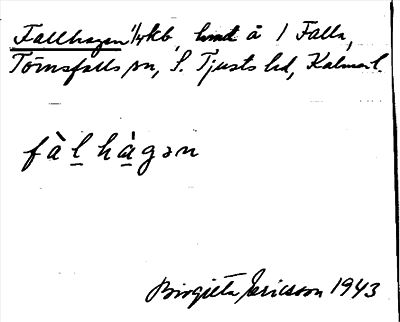 Fallhagen 1/4kb, hmd å 1 Falla,
Törnsfalls sn, S. Tjusts hd, Kalmar l.
fàl hàgən
Birgitta Ericsson 1943